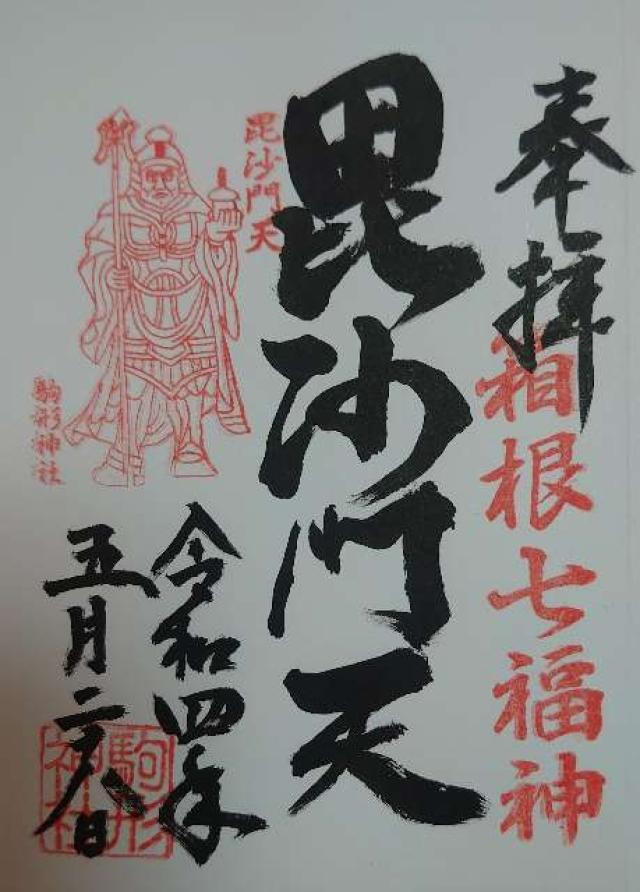 奉拝
箱根七福神
毘沙門天
毘沙門天
駒形神社
令和四年
五月二十八日
駒形
神社